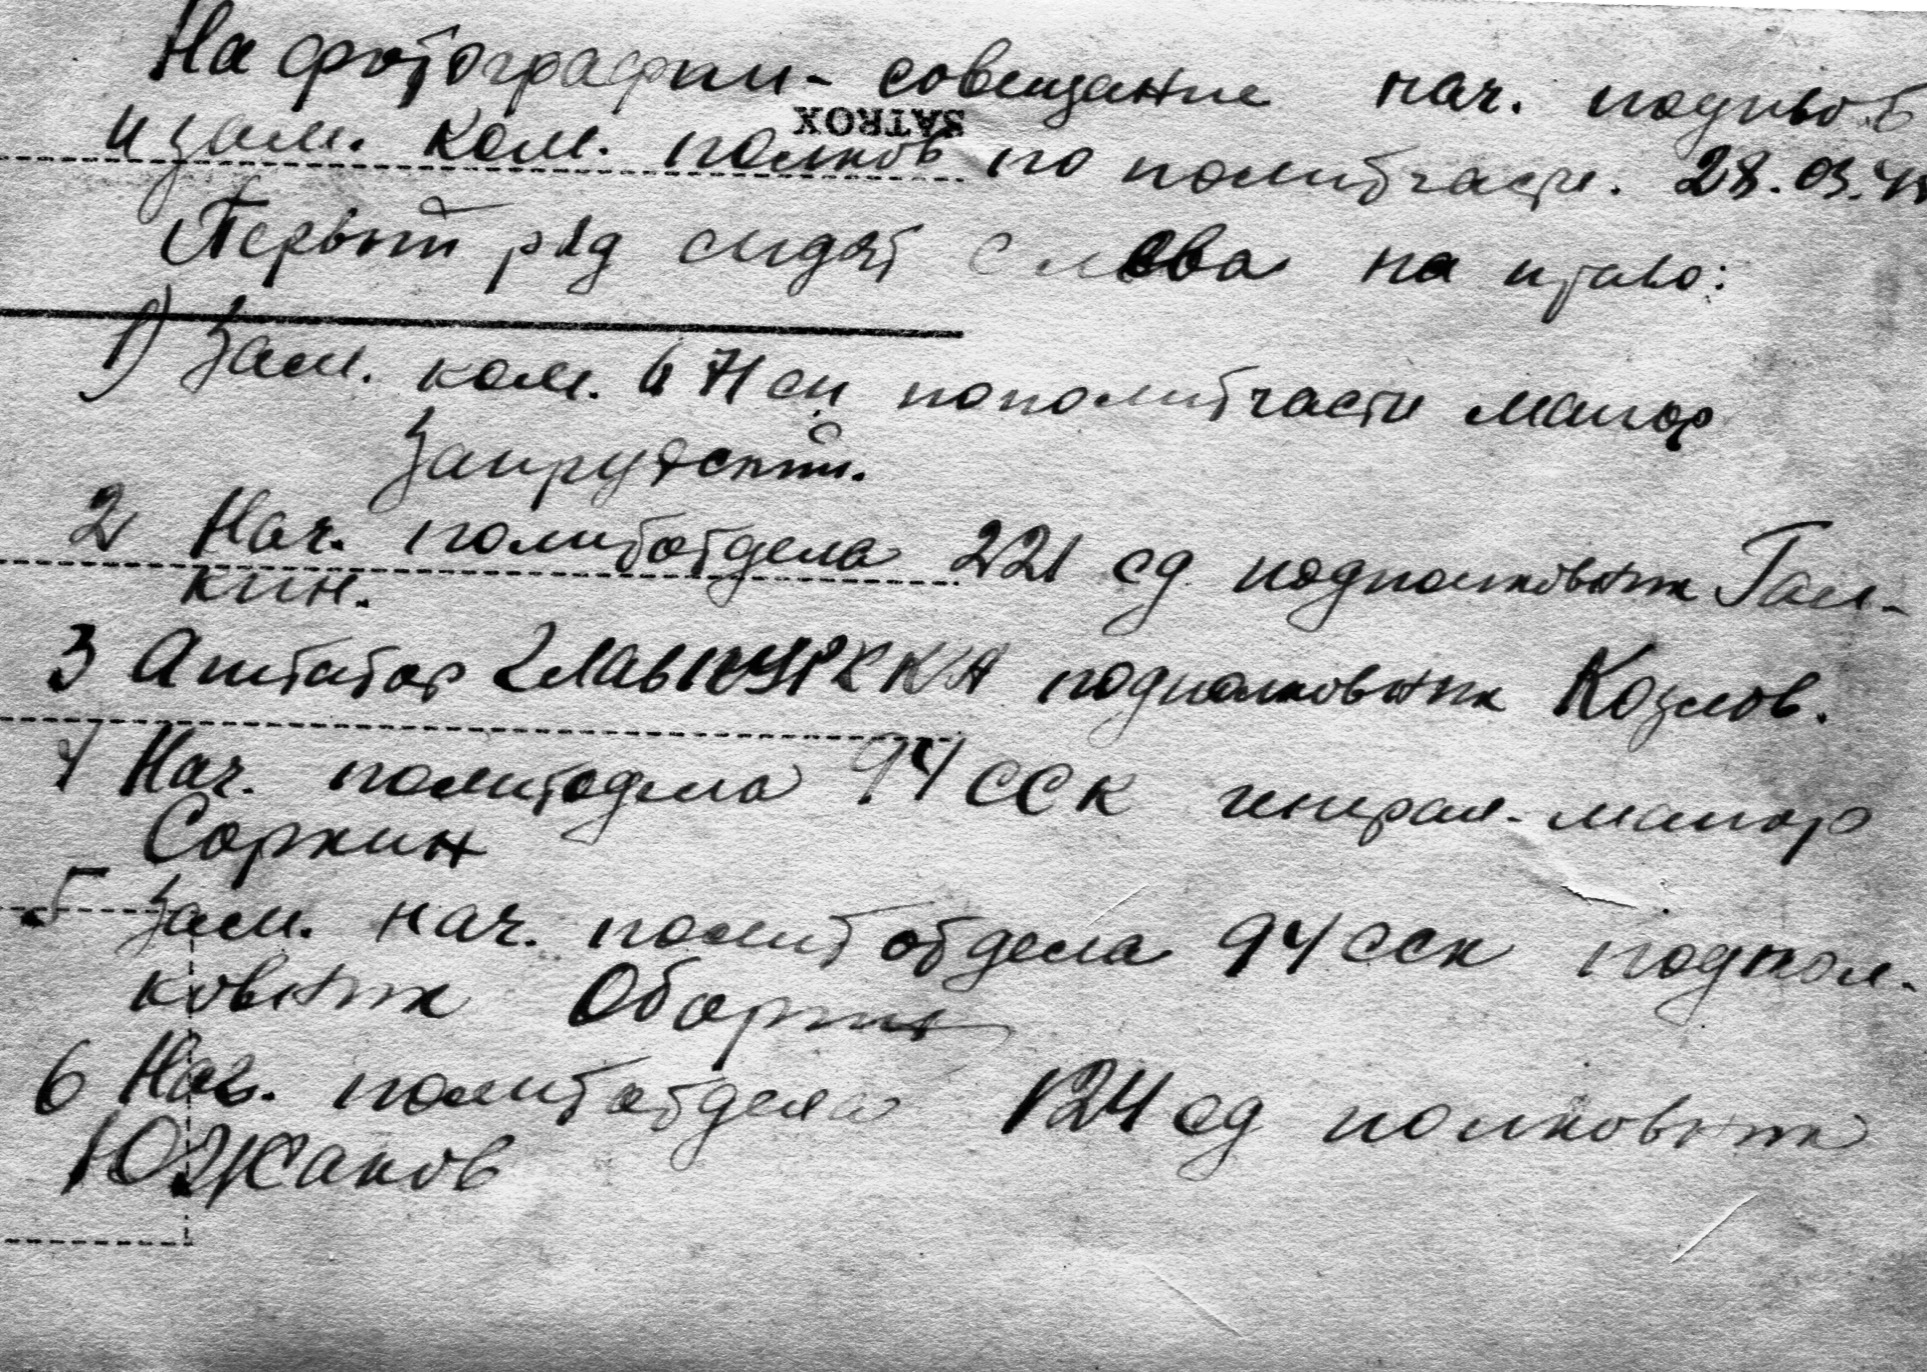 На фотографии - совещание нач. подивов
SATROX
и зам. ком. полков по политчасти. 28.03.45
Первый ряд сидят с лева на право:
1) Зам. ком. 671 сп пополитчасти маиор
Запрудский.
2 Нач. политотдела 221 сд подполковник Гал-
кин.
3 Агитатор ГлавПУРККА подполковник Козлов.
4 Нач. политодела 94 ССК генерал-маиор
Соркин
5 Зам. нач. политотдела 94 сск подпол-
ковник Оборин
6 Нач. политотдела 124 сд полковник
Южаков